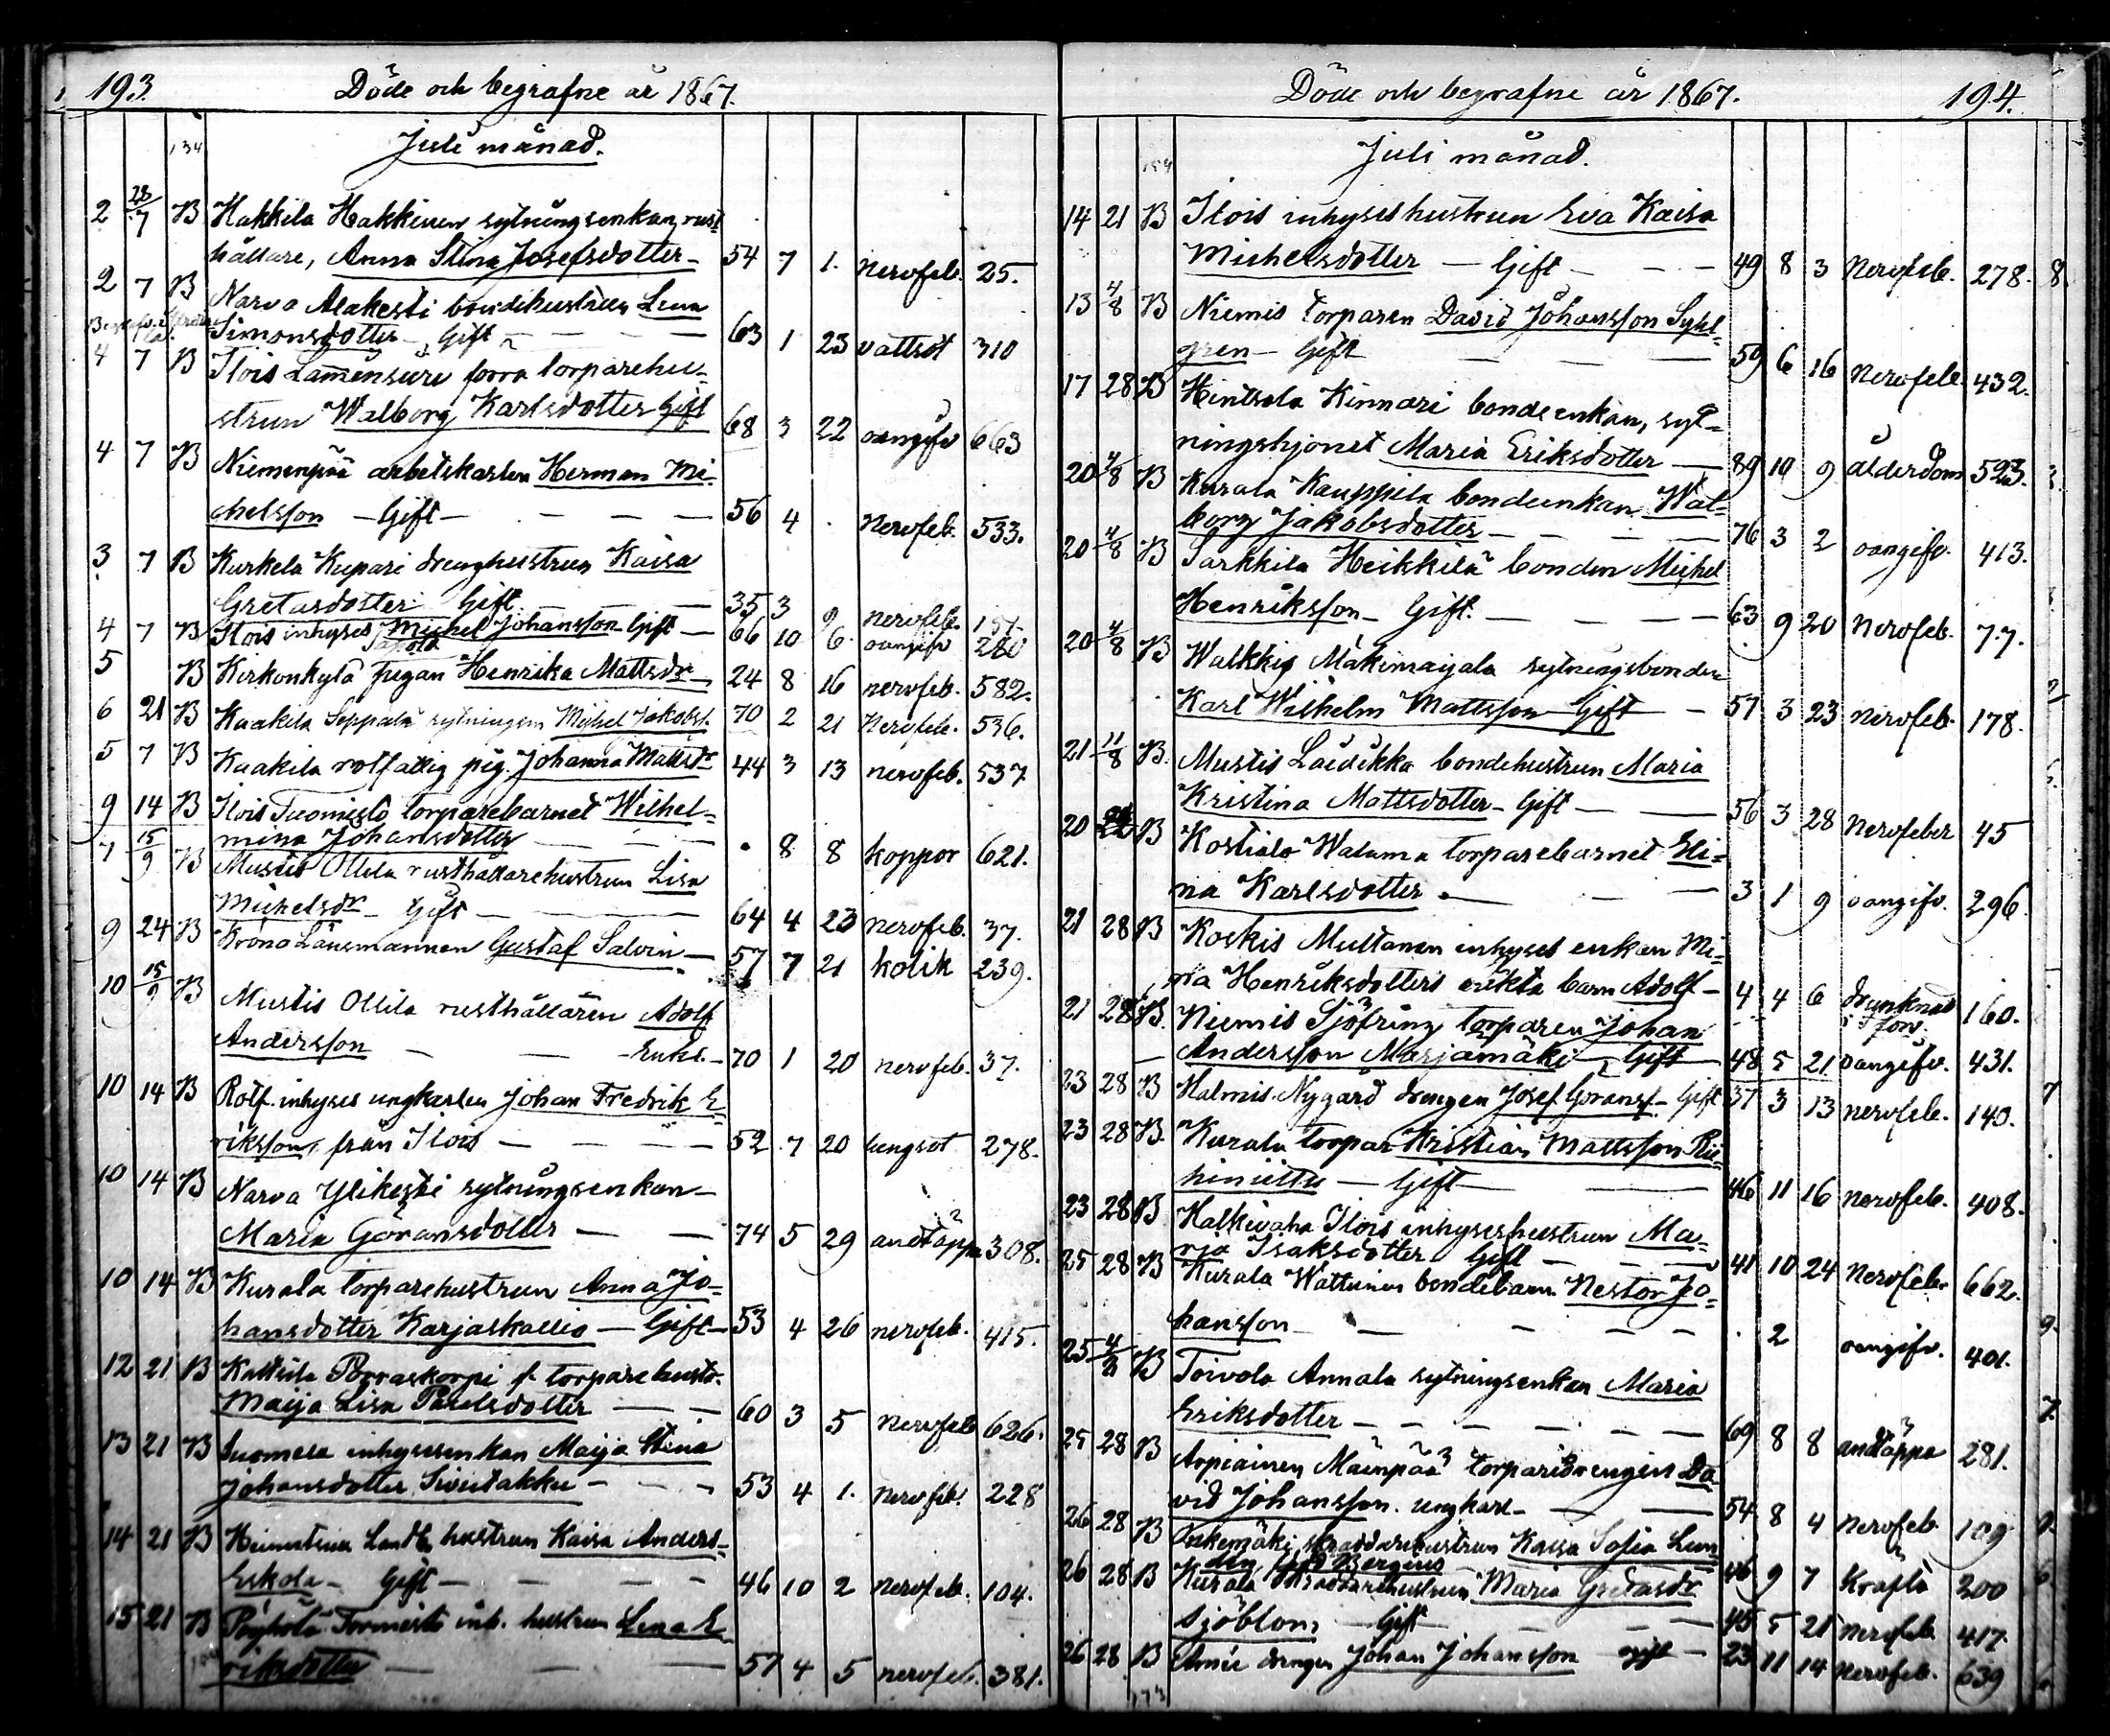 193.
Döde och begrafne år 1867.
134
Juli månad.
2 28/7 B Hakkila Hakkinen sytningsenkan, rust-
hållare, Anna Stina Josefsdotter 54 7 1. nervfeb. 25.
2 7 B Narva Alakesti bondehustrun Lena
Simonsdotter - Gift 63 1 23 vattsot 310
4 7 B Ilois förra torparehu-
strun Walborg Karlsdotter Gift 68 3 22 oangifv 663
4 7 B Niemenpää arbetskarlen Herman Mi-
chelsson - Gift - 56 4 . Nervfeb. 533.
3 7 B Kurkela Kupari drenghustrun Kaisa
Gretasdotter Gift 35 3 9 nervfeb. 151.
4 7 B Ilois inhyses Michel Johansson - Gift - 66 10 6. oangifv 280
5 B Kirkonkylä pigan Henrika Mattsdr 24 8 16 nervfeb. 582.
6 21 B Kaakila Seppälä sytningsm Michel Jakobss. 70 2 21 Nervfeb. 536.
5 7 B Kaakila rotfattig pig. Johanna Mattsdr 44 3 13 nervfeb. 537
9 14 B Ilois Tuomisto torparebarnet Wilhel-
mina Johansdotter . 8 8 koppor 621.
7 15/9 B Mustis Ollila rusthållarehustrun Lisa
Michelsdr - Gift 64 4 23 nervfeb. 37.
9 24 B Krono Länsmannen Gustaf Salvin 57 7 21 kolik 239.
10 15/9 B Mustis Ollila rusthållaren Adolf
Andersson - Enkl. - 70 1 20 nervfeb. 37.
10 14 B Rotf. inhyses ungkarlen Johan Fredrik E-
riksson, från Ilois 52 7 20 lungsot 278.
10 14 B Narva Ylikesti sytningsenkan
Maria Göransdotter 74 5 29 andtäppa 308.
10 14 B Kurala torparehustrun Anna Jo-
hansdotter Karjaskallio - Gift 53 4 26 nervfeb. 415.
12 21 B Kattila Porraskorpi f. torparehustr.
Maija Lisa Pavelsdotter 60 3 5 nervfeb 626.
13 21 B Suomela inhysesenkan Maija Stina
Johansdotter 53 4 1. nervfeb. 228
14 21 B hustrun Kaisa Anders-
Eskola - Gift - 46 10 2 nervfeb. 104.
15 21 B Pöyhölä inh. hustrun Lena E-
riksdotter 57 4 5 nervfeb. 381.
Döde och begrafne år 1867.
194.
Juli månad.
14 21 B Ilois inhyses hustrun Eva Kaisa
Michelsdotter - Gift - 49 8 3 Nervfeb. 278.
13 4/8 B Niemis torparen David Johansson Syhl-
gren - Gift 59 6 16 Nervfeb. 432.
17 28 B Hintsala Kinnari bondeenkan, syt-
ningshjonet Maria Eriksdotter 89 10 9 ålderdom 523.
20 4/8 B Kurala Kauppila bondeenkan Wal-
borg Jakobsdotter 76 3 2 oangifv. 413.
20 4/8 B Sarkkila Heikkilä bonden Michel
Henriksson - Gift. 63 9 20 Nervfeb. 77.
20 4/8 B Walkkis Mäkimaijala sytningsbonden
Karl Wilhelm Mattsson - Gift 57 3 23 nervfeb. 178.
21 11/8 B. Mustis Laidikka bondehustrun Maria
Kristina Mattsdotter - Gift 56 3 28 Nervfeber 45
20 B Kostiala Watama torparebarnet Eli-
na Karlsdotter. 3 1 9 oangifv. 296.
21 28 B Koskis Multanen inhyses enkan Mi-
na Henriksdotters oäkta barn Adolf - 4 4 6 drunknad 160.
21 28 B. Niemis Sjöfring torparen Johan
Andersson Marjamäki - Gift 48 5 21 oangifv. 431.
23 28 B Halmis Nygård drengen Josef Göranss. - Gift 37 3 13 nervfeb. 140.
23 28 B. Kurala torpar Kristian Mattsson Rii-
hiniittu - Gift 46 11 16 nervfeb. 408.
23 28 B Halkivaha Ilois inhyseshustrun Ma-
ria Isaksdotter Gift 41 10 24 Nervfeber 662.
25 28 B Kurala Wattinen bondebarn Nestor Jo-
hansson . 2 oangifv. 401.
25 4/8 B Toivola Annala sytningsenkan Maria
Eriksdotter 69 8 8 andtäppa 281.
25 28 B Arpiainen Mäenpää torparedrengen Da-
vid Johansson. ungkarl 54 8 4 Nervfeb 109
26 28 B skräddarehustrun Kaisa Sofia Lun-
din 46 9 7 Kräfta 200
26 28 B Kurala Skräddarehustrun Maria Gretasdr
Sjöblom - Gift 45 5 21 Nervfeb 417.
26 28 B drengen Johan Johansson ogift - 23 11 14 Nervfeb. 639